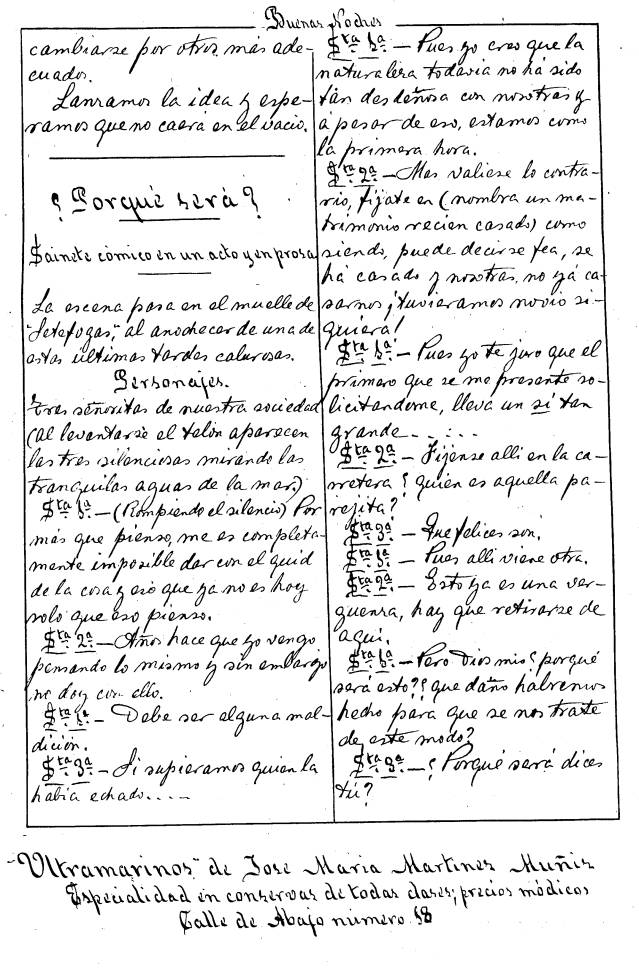 Buenas Noches
cambiarse por otros más ade-
cuados.
Lanzamos la idea y espe-
ramos que no caerá en el vacio.
¿Porqué será?
Sainete cómico en un acto y en prosa
La escena pasa en el muelle de
"Setefogas", al anochecer de una de
estas últimas tardes calurosas.
Personajes.
Tres señoritas de nuestra sociedad
(al levantarse el telón aparecen
las tres silenciosas mirando las
tranquilas aguas de la mar)
Srta. 1ª.— (Rompiendo el silencio) Por
más que pienso, me es completa-
mente imposible dar con el quid
de la cosa y eso que ya no es hoy
solo que eso pienso.
Srta. 2ª.— Años hace que yo vengo
pensando lo mismo y sin embargo
no doy con ello.
Srta. 1ª.— Debe ser alguna mal-
dición.
Srta. 3ª.— Si supieramos quien la
había echado....
Srta. 1ª.— Pues yo creo que la
naturaleza todavia no há sido
tán desdeñosa con nosotras y
á pesar de eso, estamos como
la primera hora.
Srta. 2ª.— Mas valiese lo contra-
rio, fijate en (nombra un ma-
trimonio recien casado) como
siendo, puede decirse fea, se
há casado y nosotras, no yá ca-
sarnos ¡tuvieramos novio si-
quiera!
Srta. 1ª.— Pues yo te juro que el
primero que se me presente so-
licitandome, lleva un si tan
grande......
Srta. 2ª.— Fijense alli en la ca-
rretera ¿quién es aquella pa-
rejita?
Srta. 3ª.— Que felices son.
Srta. 1ª.— Pues alli viene otra.
Srta. 2ª.— Esto ya es una ver-
guenza, hay que retirarse de
aqui.
Srta. 1ª.— Pero Dios mio ¿porqué
será esto? ¿que daño habremos
hecho para que se nos trate
de este modo?
Srta. 3ª.— ¿Porqué será dices
tú?
"Ultramarinos" de Jose Maria Martinez Muñiz
Especialidad en conservas de todas clases; precios módicos
Calle de Abajo número 18